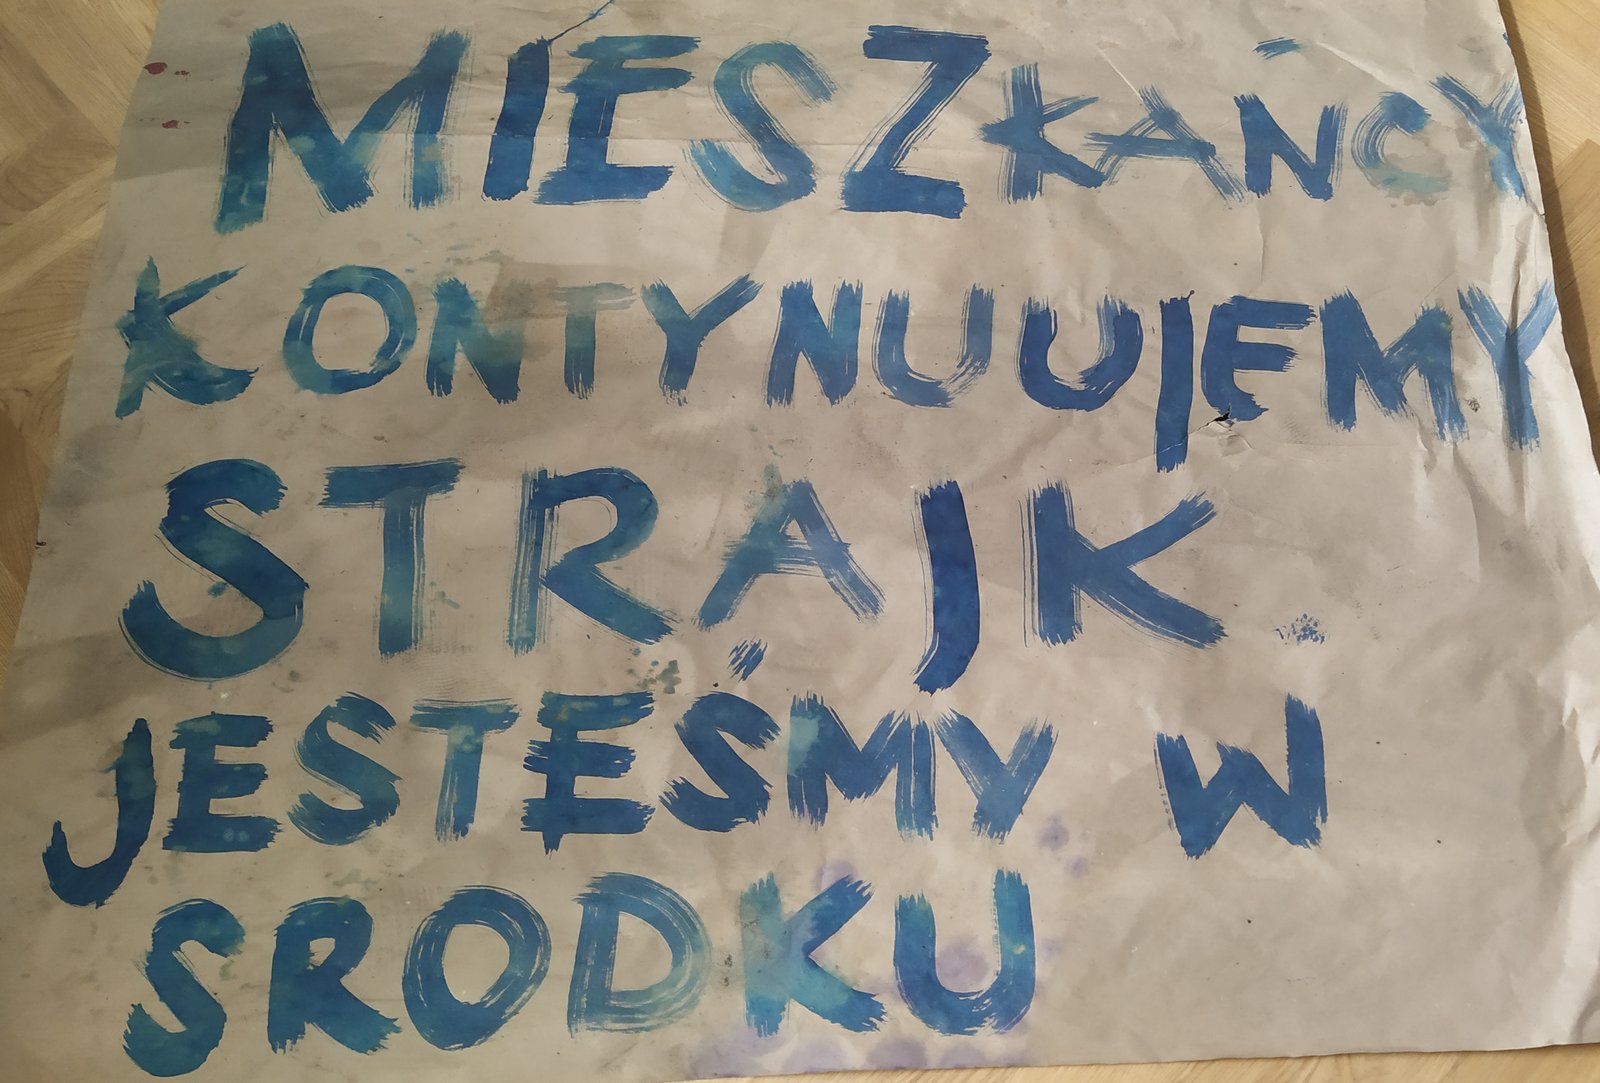 MIESZKAŃCY
KONTYNUUJEMY
STRAJK
JESTEŚMY W
SRODKU